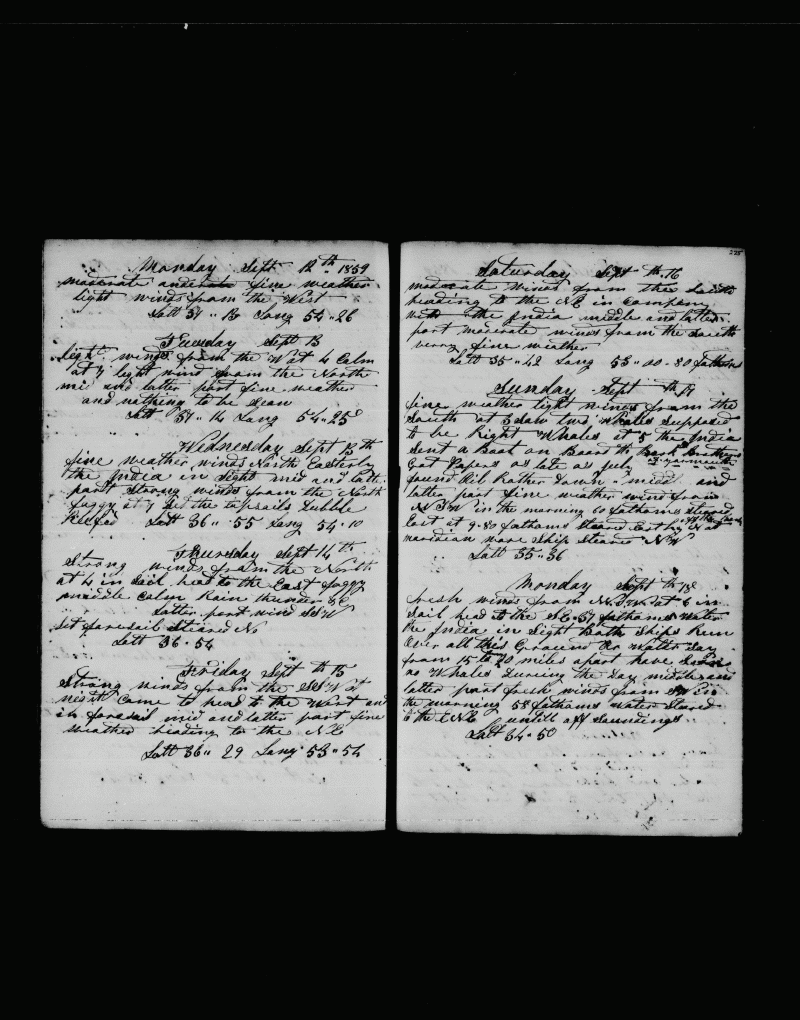 Monday Sept 12th 1859
moderate and fine weather
light winds from the West
Latt 37 " 13 Long 54 " 26
Tuesday Sept 13
light winds from the West 4 Calm
at 7 light wind from the North
mid and latter part fine weather
and nothing to be seen
Latt 37 " 14 Long 54 - 25
Wednesday Sept 13th
fine weather winds North Easterly
the India in Sight mid and latter
part strong winds from the North
foggy at 7 set the topsails dubble
Reefed Latt 36 " 55 Long 54 " 10
Thursday Sept 14th
Strong winds from the North
at 4 in Sail head to the East foggy
middle Calm Rain thunder &c
latter part wind SSW
set foresail Steared No
Latt 36 - 54
Friday Sept th 15
Strong winds from the SSW at
night Came to head to the West and
in foresail mid and latter part fine
weather heading to the NE
Latt 36 " 29 Long 53 - 54
228
Saturday Sept th 16
moderate winds from the South
heading to the NE in Company
with the India middle and latter
part moderate winds from the South
verry fine weather
Latt 35 " 42 Long 53 - 00 - 80 fathoms
Sunday Sept th 17
fine weather light winds from the
South at 3 Saw two Whales Supposed
to be Right Whales at 5 the India
Sent a Boat on Board the Bark Brothers
Got Papers as late as July
found Rib Rather Down - mid and
latter part fine weather wind from
in the morning 60 fathoms Steared
East at 9 - 80 fathoms Steared East by N at
meridian ware Ship Steared NW
Latt 35 - 36
Monday Sept th 18
fresh winds from at 6 in
Sail head to the SE - 57 fathoms Water
the India in Sight Both Ships Run
Over all this Ground Or Water Day
from 15 to 20 miles apart have Seen
no Whales During the Day middle and
latter part fresh winds from SW in
the morning 58 fathoms Water Steared
to the ENE untill off Soundings
Latt 34 - 50